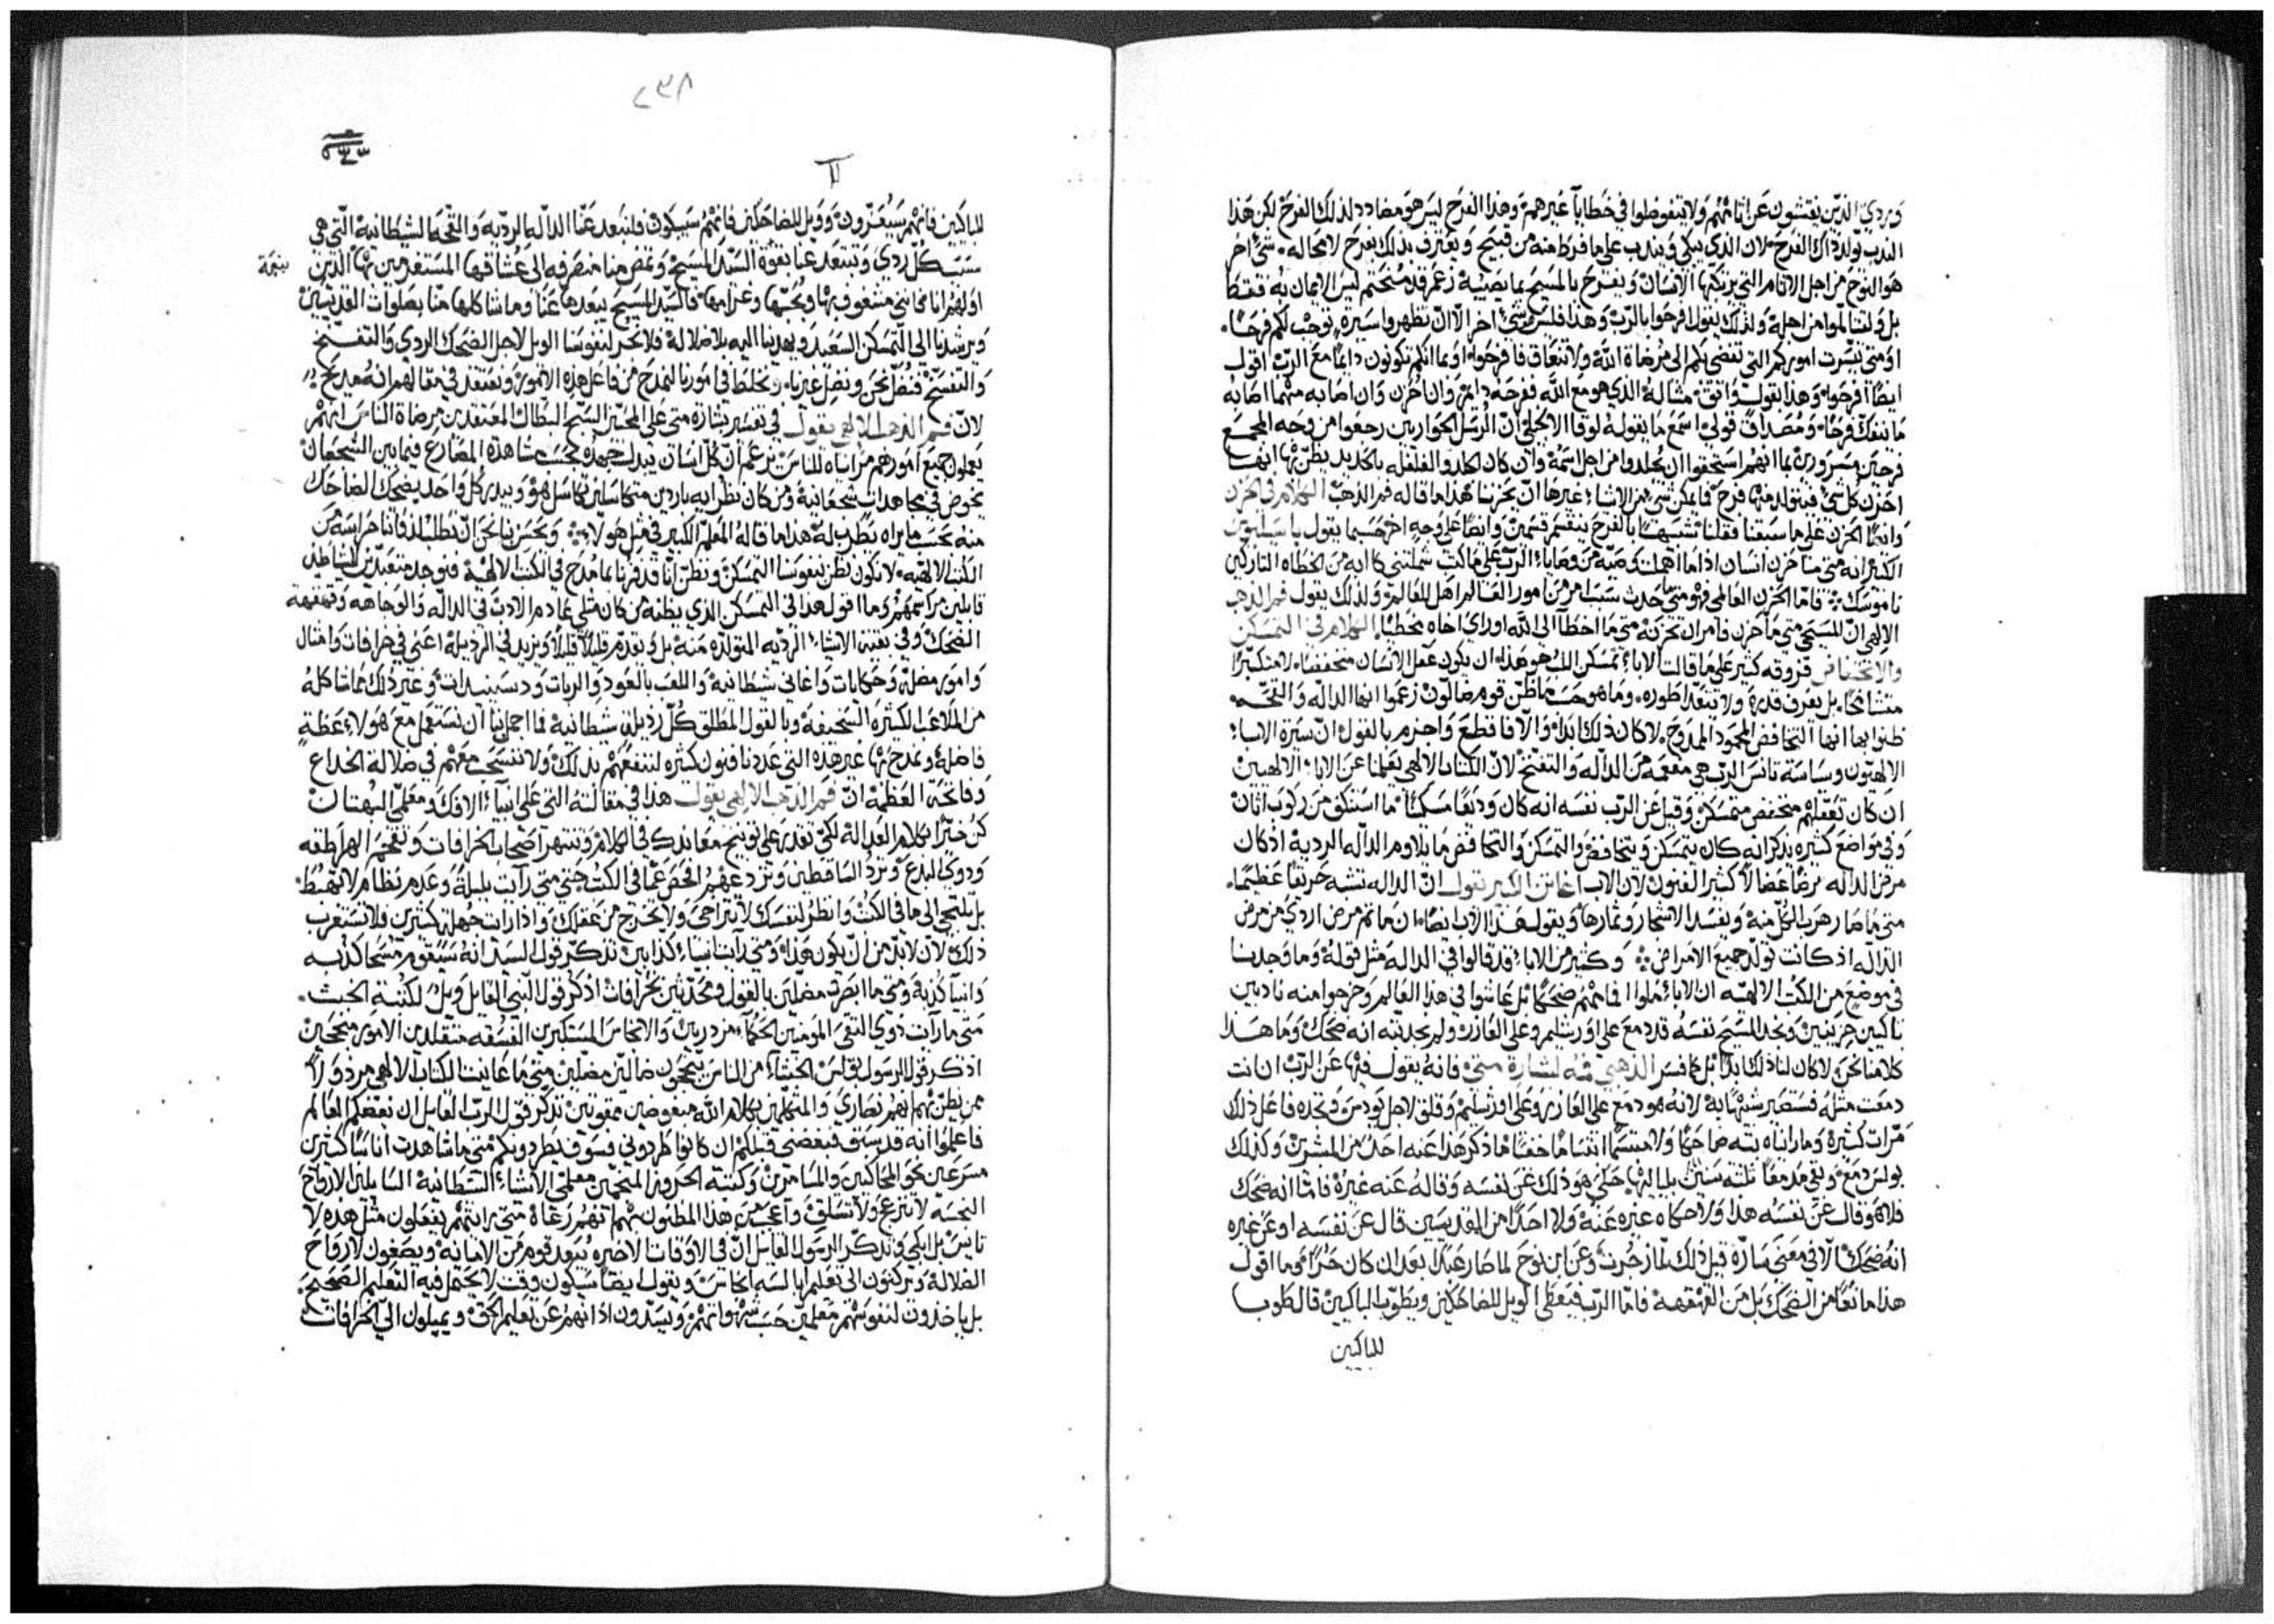 وردي الذين يفتشون عن اثامهم ولا يتفوضلوا في خطايا غيرهم وهذا الفرح ليس هو مضادد لذلك الفرح لكن هذا
الندب تولد ذاك الفرح لان الذي يبكي ويندب على ما فرط منه من قبيح ويعترف بذلك يفرح لا محاله شيء اخر
هو النوح من اجل الاثام التي يرتكبها الانسان ويفرح بالمسيح بما يصيبه زعم قد منحتم ليس الايمان به فقط
بل ولتتالموا من اجله ولذلك يقول افرحوا بالرب وهذا فليس هو شيء اخر الا ان تظهروا سيرة توجب لكم فرحًا
او متى تيسرت اموركم التي تفضي بكم الى مرضاة الله ولا تتعاق فافرحوا او بما انكم تكونون دايمًا مع الرب اقول
ايضًا افرحوا وهذا يقول واثق مثاله الذي هو مع الله ففرحه دايم وان احزن وان اصابه مهما اصابه
ما ينفك فرحًا ومصداق قولي اسمع ما يقوله لوقا الانجيلي ان الرسل الحواريين رجعوا من وجه المجمع
فرحين مسرورين بما انهم استحقوا ان يجلدوا من اجل اسمه وان كان الجلد والفلفله بالحديد يظن بها انها
احزن كل شيء فيتولد منها فرح فايمكن شيء من الاشياء غيرها ان يحزننا هذا ما قاله فم الذهب الكلام في الحزن
وايضًا الحزن على ما سبقنا فقلنا تشبهًا بالفرح ينقسم قسمين وايضًا على وجه اخر حسبما يقول باسيليوس
الكبير انه متى ما حزن انسان اذا ما اهملت وصية من وصايا الرب على ما كتب شملتني كابه من الخطاه التاركين
ناموسك فاما الحزن العالمي فهو متى حدث سبب امر من امور العالم اهل للعالم ولذلك يقول فم الذهب
الالهي ان المسيحي متى ما حزن فامران تحزنه متى ما اخطا الى الله او راى اخاه يخطيء الكلام في التمسكن
والانخفاض فروقه كثير على ما قالت الابا تمسكن اللب هو هذا ان يكون عقل الانسان منخفضًا لا متكبرًا
متشامخًا بل يعرف قدره ولا يتعدا طوره وما هو حسب ما ظن قوم ضالون زعموا انها الداله والتحمه
ظنوا بها انها التخافض المحمود الممدوح لا كان ذلك ابدًا والا فاقطع واجزم بالقول ان سيرة الابا
الالهيون وسياسة تانس الرب هي مفعمه من الداله والتفتخ لان الكتاب الالهي يعلمنا عن الابا الالهيين
ان كان تعقلهم منخفض متمسكن وقيل عن الرب نفسه انه كان وديعًا مسكينًا ما استنكف من ركوب اتان
وفي مواضع كثيره يذكر انه كان يتمسكن ويتخافض والتمسكن والتخافض ما يلاوم الداله الرديه اذ كان
مرض الداله مرضًا عضالًا كثير الفنون لان الاب اغاثن الكبير يقول ان الداله تشبه حريقًا عظيمًا
متى ما صار هرب الكل منه ويفسد الاشجار وثمارها ويقول هذا الاب ايضًا ان ما ثم مرض اردي من مرض
الداله اذ كانت تولد جميع الامراض وكثير من الابا قد قالوا في الداله مثل قوله وما وجدنا
في موضع من الكتب الالهيه ان الابا ملوا افامهم ضحكًا بل عاشوا في هذا العالم وخرجوا منه نادبين
باكين حزينين ونجد المسيح نفسه قد دمع على اورشليم وعلى العازر ولم نجد انه ضحك وما هذا
كلامنا نحن لا كان لنا ذلك ابدًا بل كما فسر الذهبي فمه لبشارة متى فانه يقول فيها عن الرب ان انت
دمعت مثله فستصير شبيهًا به لانه هو دمع على العازر وعلى اورشليم وقلق لاجل يودس ونجده فاعل ذلك
مرات كثيرة وما راياه بته ضاحكًا ولا مبتسمًا ابتسامًا خفيفًا ما ذكر هذا عنه احد من المبشرين وكذلك
بولس دمع وبقي مدمعًا ثلثه سنين بلياليها حكى هو ذلك عن نفسه وقاله عنه غيره فاما انه ضحك
فلا هو قال عن نفسه هذا ولا حكاه غيره عنه ولا احدًا من القديسين قال عن نفسه او عن غيره
انه ضحك الا في معنى ساره قيل ذلك لما زجرت وعن ابن نوح لما صار عبدًا بعد ان كان حرًا وما اقول
هذا مانعًا من الضحك بل من القهقهة فاما الرب فيعطي الويل للضاحكين ويطوب الباكين قال طوبا
للباكين
٢٣٨
للباكين فانهم سيُعزّون وويل للضاحكين فانهم سيبكون فلنبعد عنا الداله الرديه والتحمه الشيطانيه التي هي
سبب كل ردي وتبتعد عنا بقوة السيد المسيح وتمضي منا منصرفه الى عشاقها المستغرمين بها الذين
اولهم انا فانني مشغوف بها وبحبها وغرامها فالسيد المسيح يبعدها عنا وما شاكلها منا بصلوات القديسين
ويرشدنا الى التمسكن السعيد ويهدينا اليه بلا ضلاله فلا نحر لنفوسنا الويل لاجل الضحك الردي والتفتخ
والتفسح فنضل نحن ونضل غيرنا ونخلط في امورنا لنمدح من فاعل هذه الامور ونعتقد في مقالهم انه مديح
لان فم الذهب الالهي يقول في تفسير بشارة متى على المحبين السبح البطال المعتقدين مرضاة الناس انهم
يعملون جميع امورهم مراياه للناس زعم ان كل انسان يبذل جهده بحسب مشاهدة المصارع فيما بين الشجعان
يخوض في مجاهدات شجعانية ومن كان نظرايه باردين متكاسلين تكاسل هو ويبدر كل واحد يضحك الضاحك
منه بحسب ما يراه يطرب له هذا ما قاله المعلم الكبير في مثل هولاء ويحسن بنا نحن ان نطلب لذواتنا حراسه من
الكتب الالهيه لا نكون نظن بنفوسنا التمسكن ونظن انا قد فزنا بما مدح في الكتب الالهيه فنوجد متعبدين للشياطين
قابلين مراسمهم وما اقول هذا في التمسكن الذي يظنه من كان مثلي عادم الادب في الداله والوجاهه وقهقهة
الضحك وفي بقية الاشياء الرديه المتولده منه بل ونعدم قليلًا قليلًا ونزيد في الرذيله اعني في خرافات وامثال
وامور مضله وحكايات واغاني شيطانيه واللعب بالعود والربات ودستبندات وغير ذلك مما شاكله
من الملاعب الكثيره السخيفه وبالقول المطلق كل رذيله شيطانيه فما احرانا ان نستعمل مع هولاء عظة
فاضلة ونمدح بها غير هذه التي عددنا فنون كثره لننفعهم بذلك ولا ننسحب معهم في ضلالة الخداع
وفاتحة العظمه ان فم الذهب الالهي يقول هذا في مقالته التي على انبياء الافك ومعلمي البهتان
كن خبيرًا بكلام العداله لكي تقدر على توبيخ معانديك في الكلام وتنتهر اصحاب الخرافات وتفحم الهراطقه
وذوي البدع وترد الساقطين وتردعهم الفحص عما في الكتب حتى متى رايت بلبلة وعدم نظام لا تهبط
بل تلتجي الى ما في الكتب وانظر لنفسك لا تتراخى ولا تخرج من عقلك واذا رايت جهله كثيرين فلا تستغرب
ذلك لان لا بد من ان يكون هذا ومتى رايت انبياء كذابين تذكر قول السيد انه سيقوم مسحا كذبه
وانبيا كذبه ومتى ما ابصرت مضلين بالقول ومحدثين بخرافات اذكر قول النبي القايل ويل لكتبة الخبث
متى ما رايت ذوي التقى المومنين الحكما مزدريين والانجاس المستكبرين الفسقه متقلدين الامور منجحين
اذكر قول الرسول بولس الخبثاء من الناس ينجحون ضالين مضلين متى ما عاينت الكتاب الالهي مرذولًا
ممن يظن بهم انهم نصاري والمتكلمين بكلام الله مبغوضين ممقوتين تذكر قول الرب القايل ان يبغضكم العالم
فاعلموا انه قد سبق فبغضني قبلكم ان كانوا طردوني فسوف يطردونكم متى ما شاهدت اناسًا كثيرين
مسرعين نحو المحاكين والمسامرين وكتبه الحروز المنجمين معلمي الاشياء الشيطانيه السايلين الارواح
النجسه لا تنزعج ولا تتقلق واعجب من هذا المظنون بهم انهم رعاة متى رايتهم يفعلون مثل هذه لا
تايس بل ابكي وتذكر الرسول القايل ان في الاوقات الاخيره يبعد قوم من الامانه ويصغون لارواح
الضلاله ويركنون الى تعليم ابالسه انجاس ويقول ايضًا سيكون وقت لا يحتمل فيه التعليم الصحيح
بل ياخذون لنفوسهم معلمين حسب شهواتهم ويسدون اذانهم عن تعليم الحق ويميلون الى الخرافات